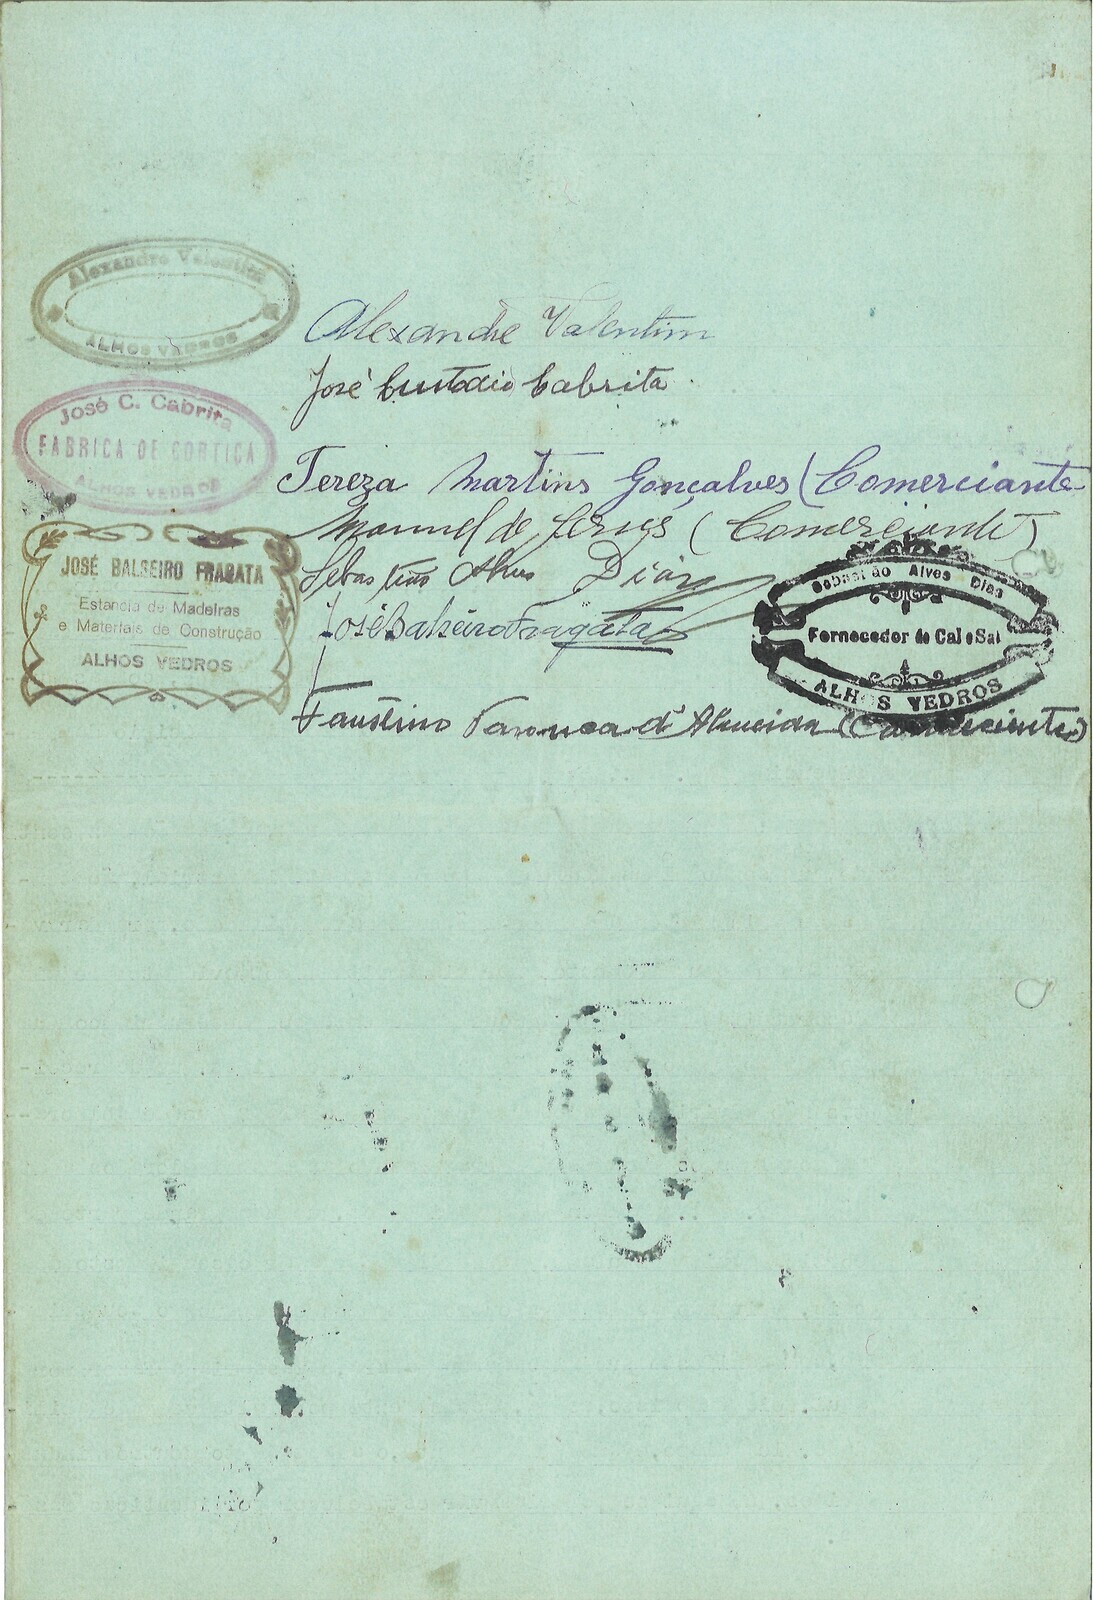 Alexandre Valentim
ALHOS VEDROS
Alexandre Valentim
José Custodio Cabrita
José C. Cabrita
FABRICA DE CORTIÇA
ALHOS VEDROS
Tereza Martins Gonçalves (Comerciante
Manuel de (Comerciante)
Sebastião Alves Dias
Sebastião Alves Dias
Fornecedor de Cal e Sal
ALHOS VEDROS
JOSÉ BALSEIRO FRAGATA
Estancia de Madeiras
e Materiais de Construção
ALHOS VEDROS
José Balseiro Fragata
Faustino d'Almeida (Comerciante)